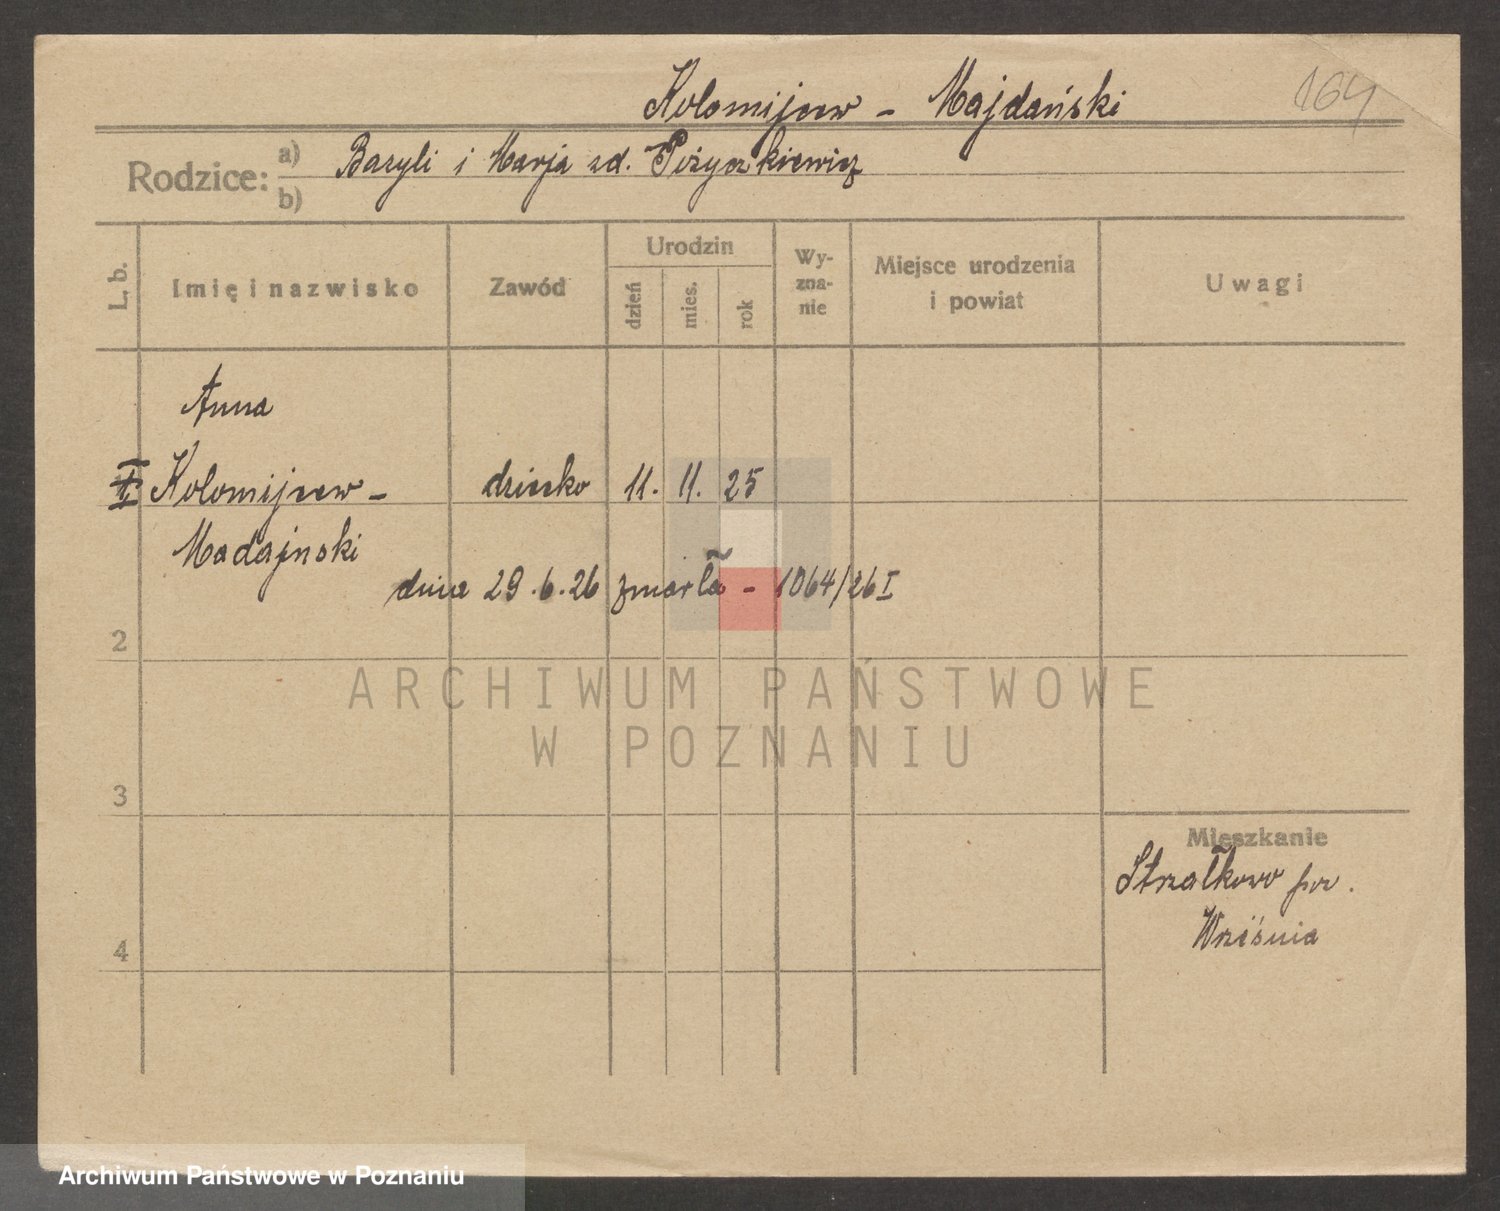 Kolomijcew - Majdański
164
Rodzice: a) Bazyli i Marja zd. Pożyczkiewicz
b)
L. b.
Imię i nazwisko
Zawód
Urodzin
dzień
mies.
rok
Wy-
zna-
nie
Miejsce urodzenia
i powiat
Uwagi
Anna
1 Kolomijcew - dziecko 11. 11. 25
Madajnski
dnia 29.6.26 zmarła - 1064/26 I
2
ARCHIWUM PAŃSTWOWE
W POZNANIU
3
Mieszkanie
Strzałkowo pow.
Września
4
Archiwum Państwowe w Poznaniu